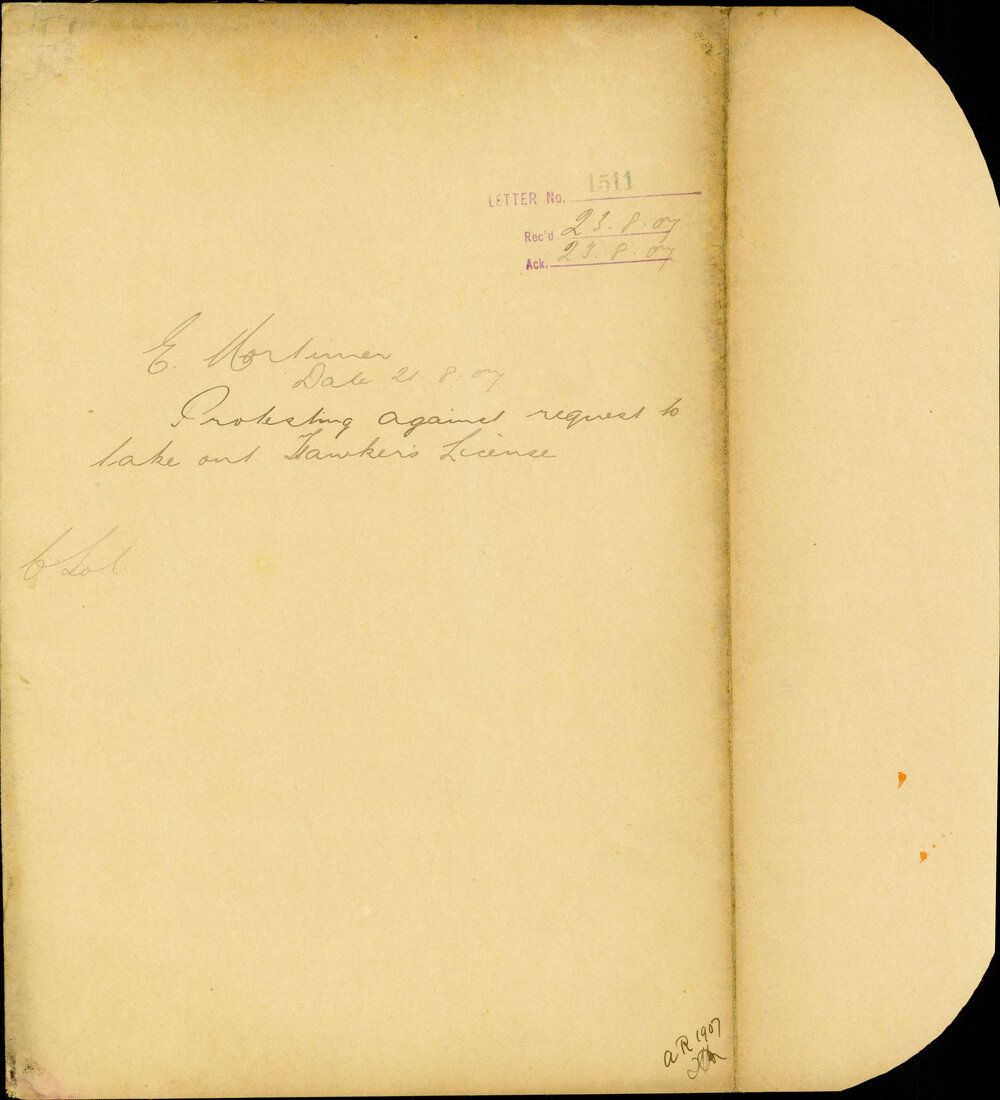 LETTER No. 1511
Rec'd 23.8.07
Ack. 23.8.07
E. Mortimer
Date 21.8.07
Protesting against request to
take out Hawker's License
C Sol
A R 1907